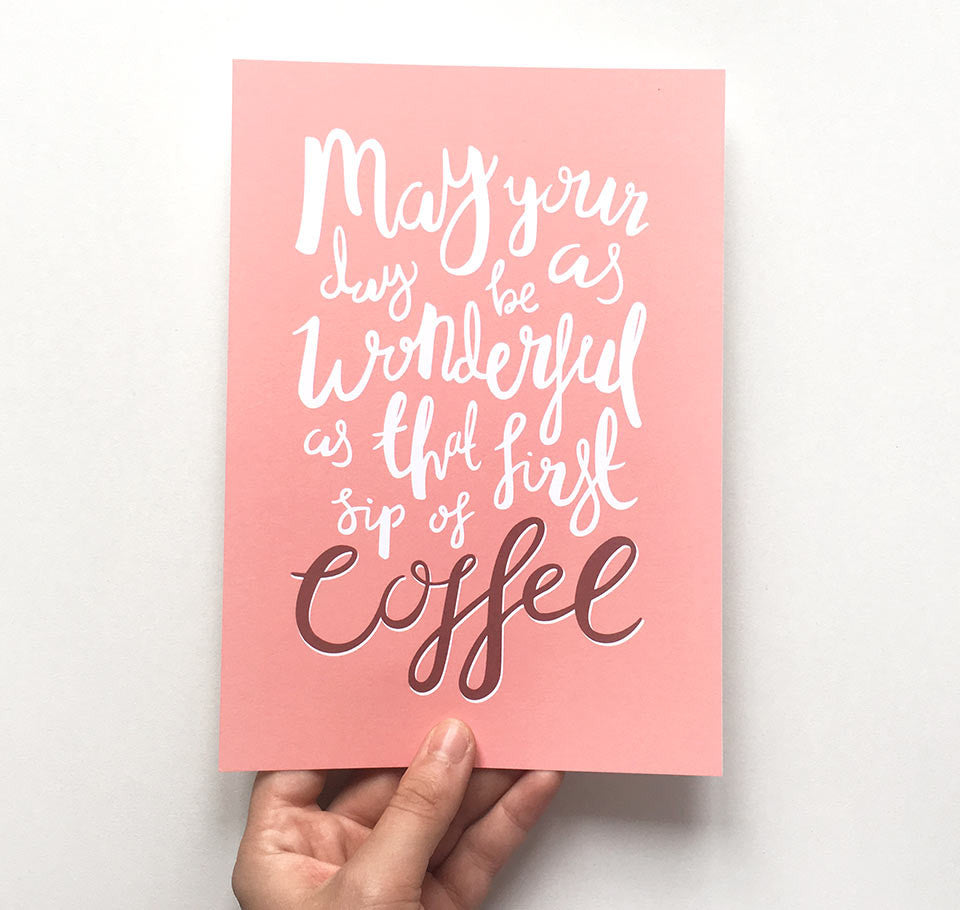 May your
day be as
wonderful
as that first
sip of
Coffee